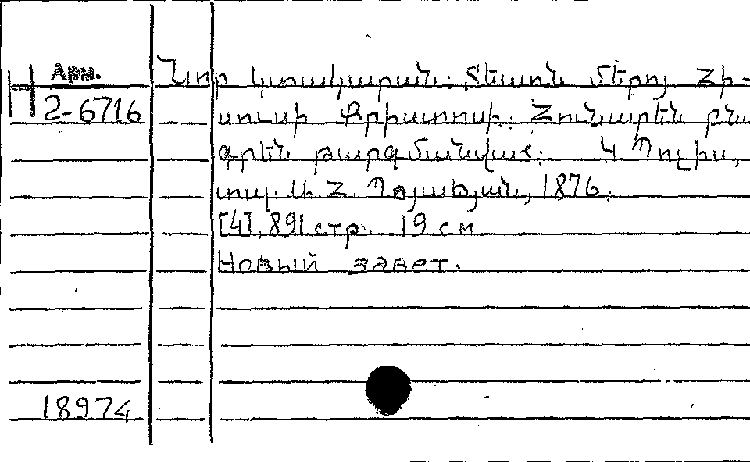 Арм.
Նոր կտակարան: Տեառն մերոյ Յի-
Н 2-6716
սուսի Քրիստոսի: Յունարէն բնա
գրէն թարգմանված: Կ Պոլիս,
տպ. Ա. Յ. Պօյաճյան, 1876:
[4], 891 стр. 19 см
Новый завет.
18974